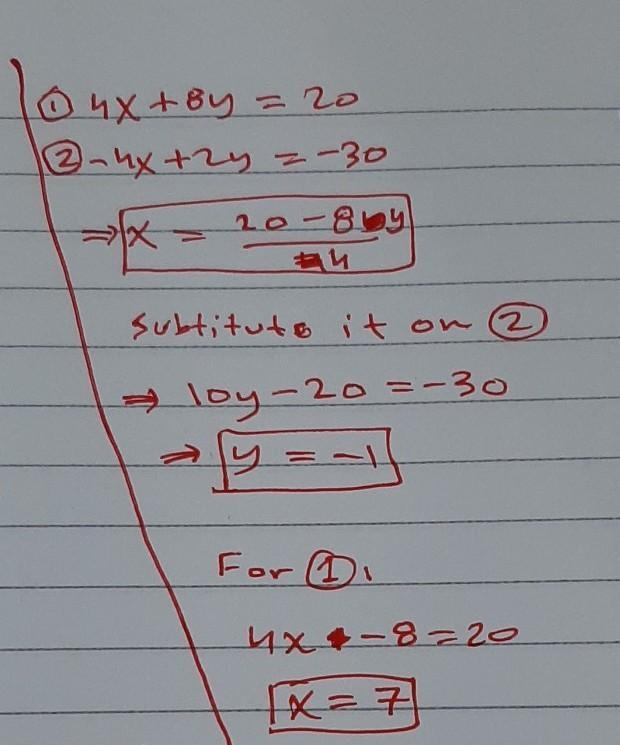 ① 4x + 8y = 20
② -4x + 2y = -30
⇒ x = (20 - 8y)/4
Subtitute it on ②
⇒ 10y - 20 = -30
⇒ y = -1
For ①,
4x - 8 = 20
x = 7